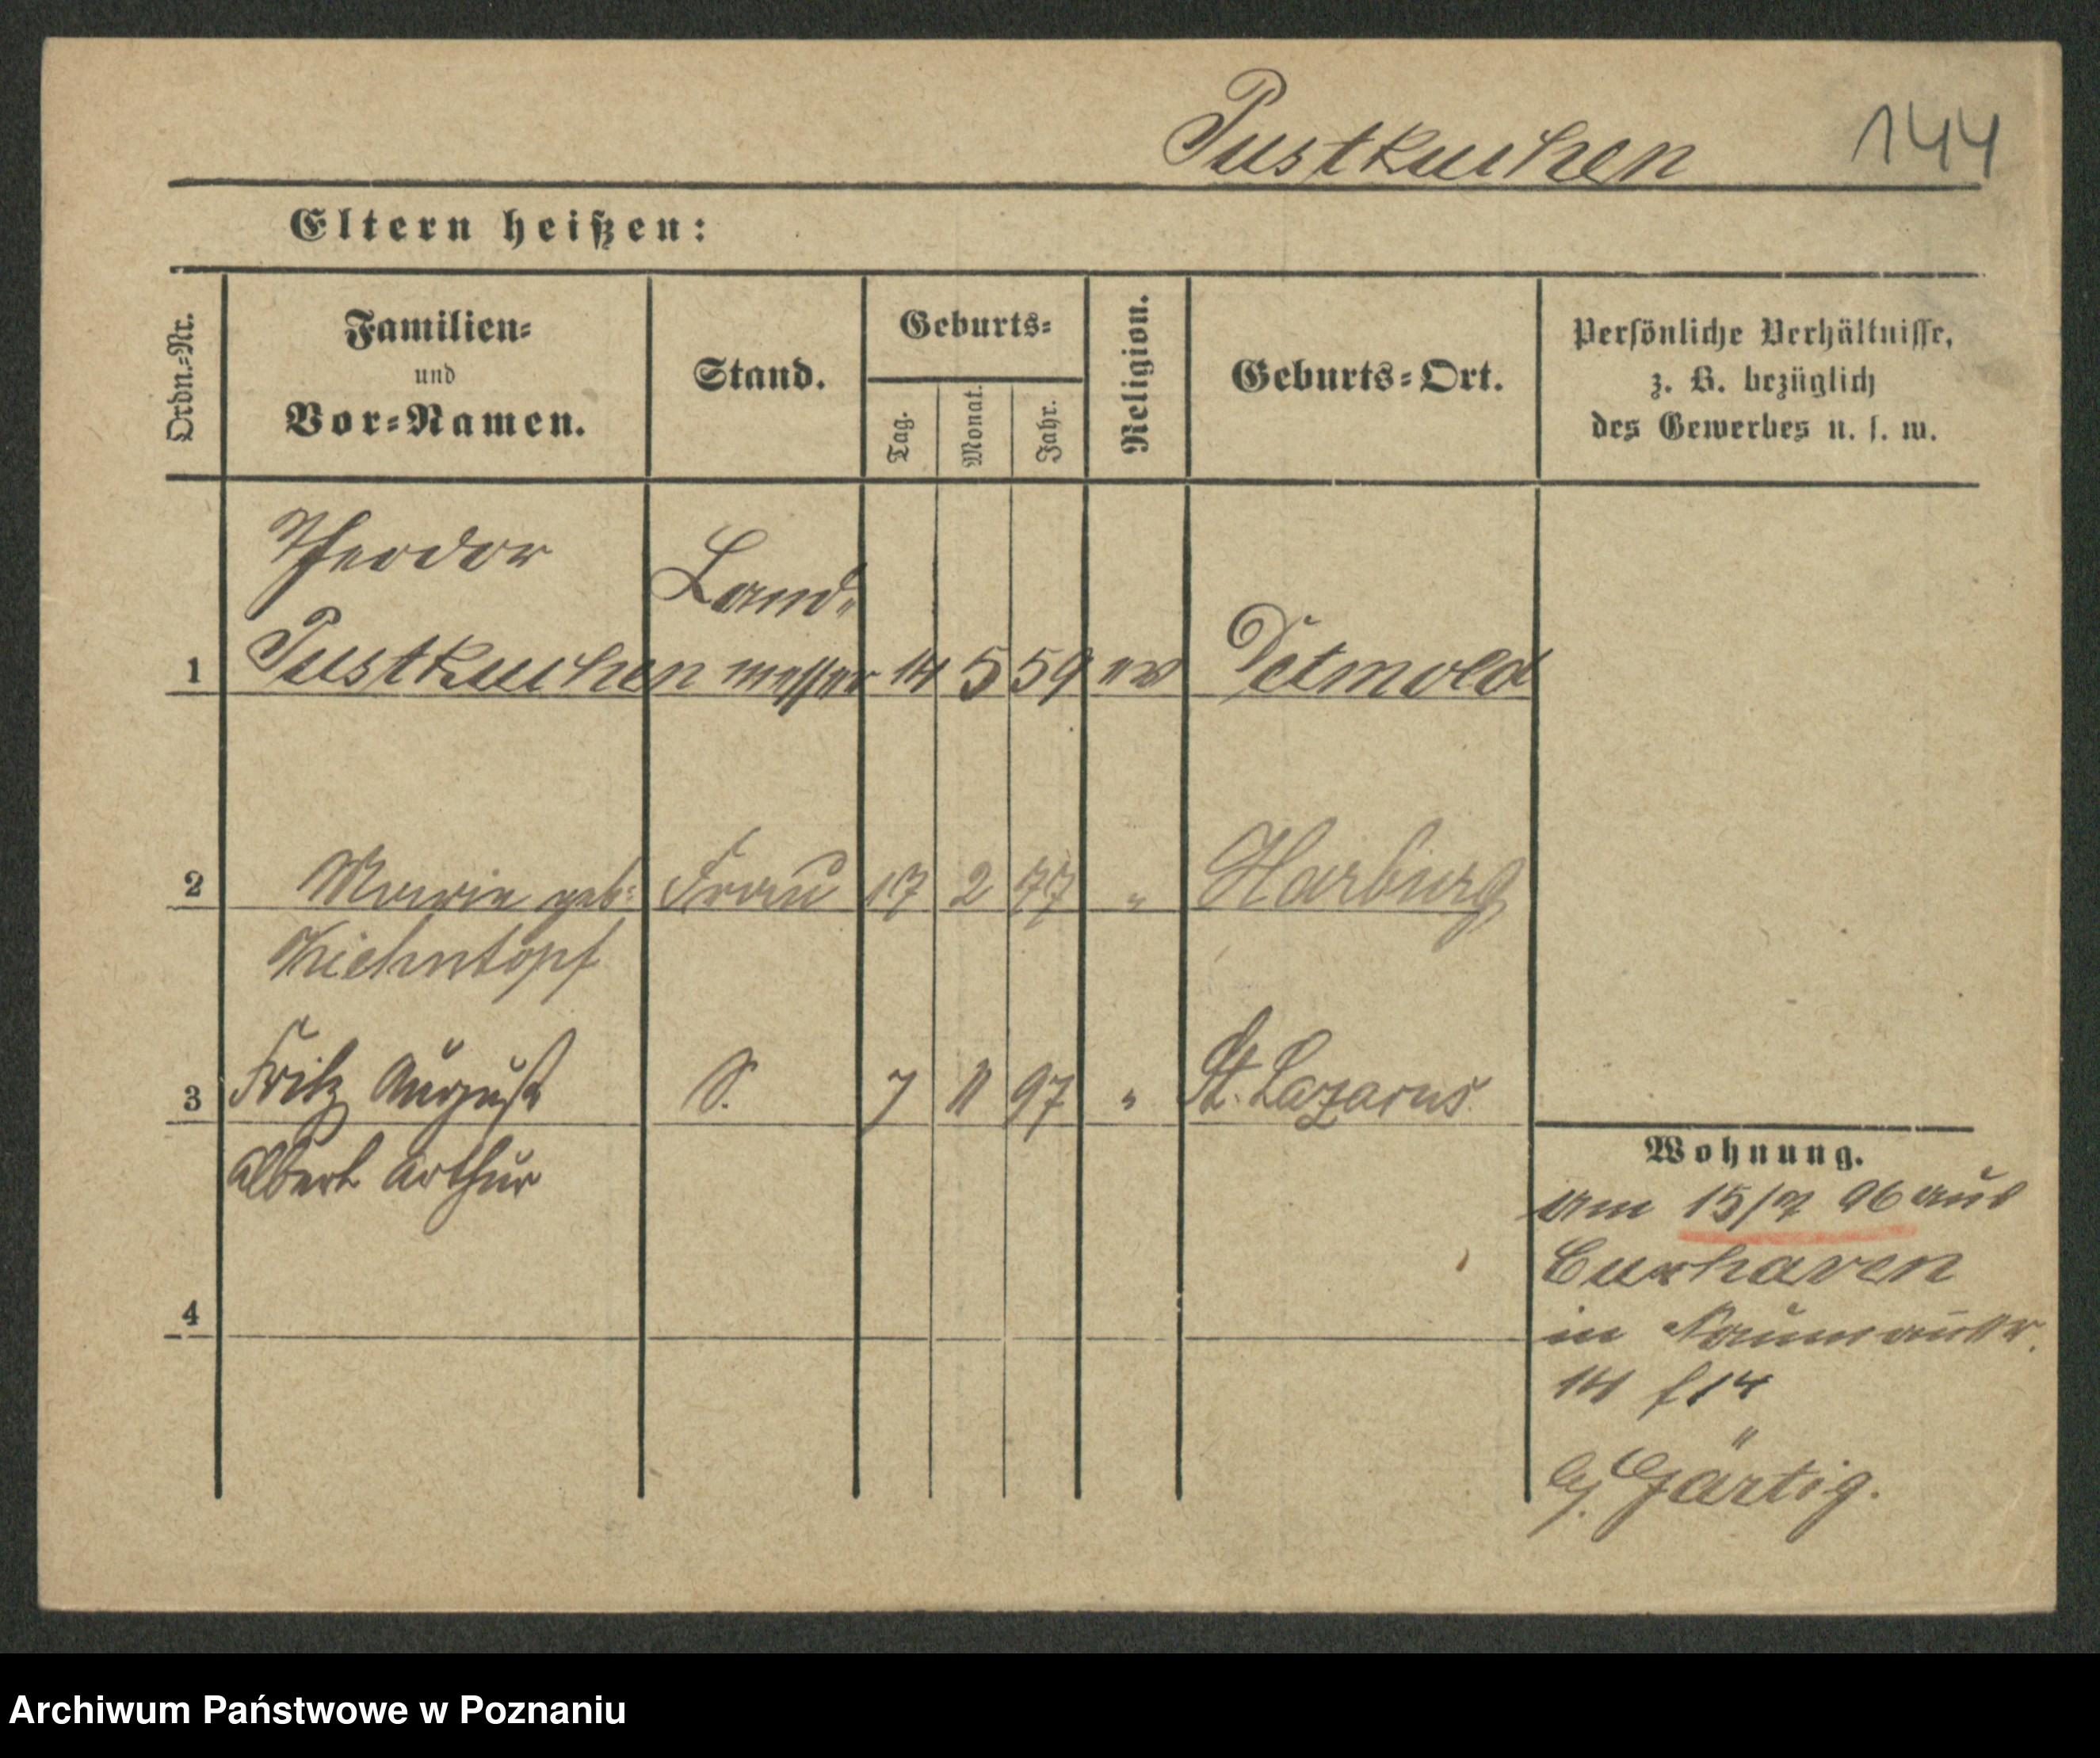 Pustkuchen 144
Eltern heißen:
Ordn.=Nr.
Familien=
und
Vor=Namen.
Stand.
Geburts=
Tag.
Monat.
Jahr.
Religion.
Geburts=Ort.
Persönliche Verhältnisse,
z. B. bezüglich
des Gewerbes u. s. w.
Theodor Land=
1 Pustkuchen messer 14 5 59 ev Detmold
2 Marie geb: Frau 17 2 77 " Harburg
Kiehntopf
3 Fritz August S. 7 11 97 " St. Lazarus
Albert Arthur
4
Wohnung.
am 15/7 96 aus
Cuxhaven
in Naumannstr.
14 f 14
Gärtig.
Archiwum Państwowe w Poznaniu